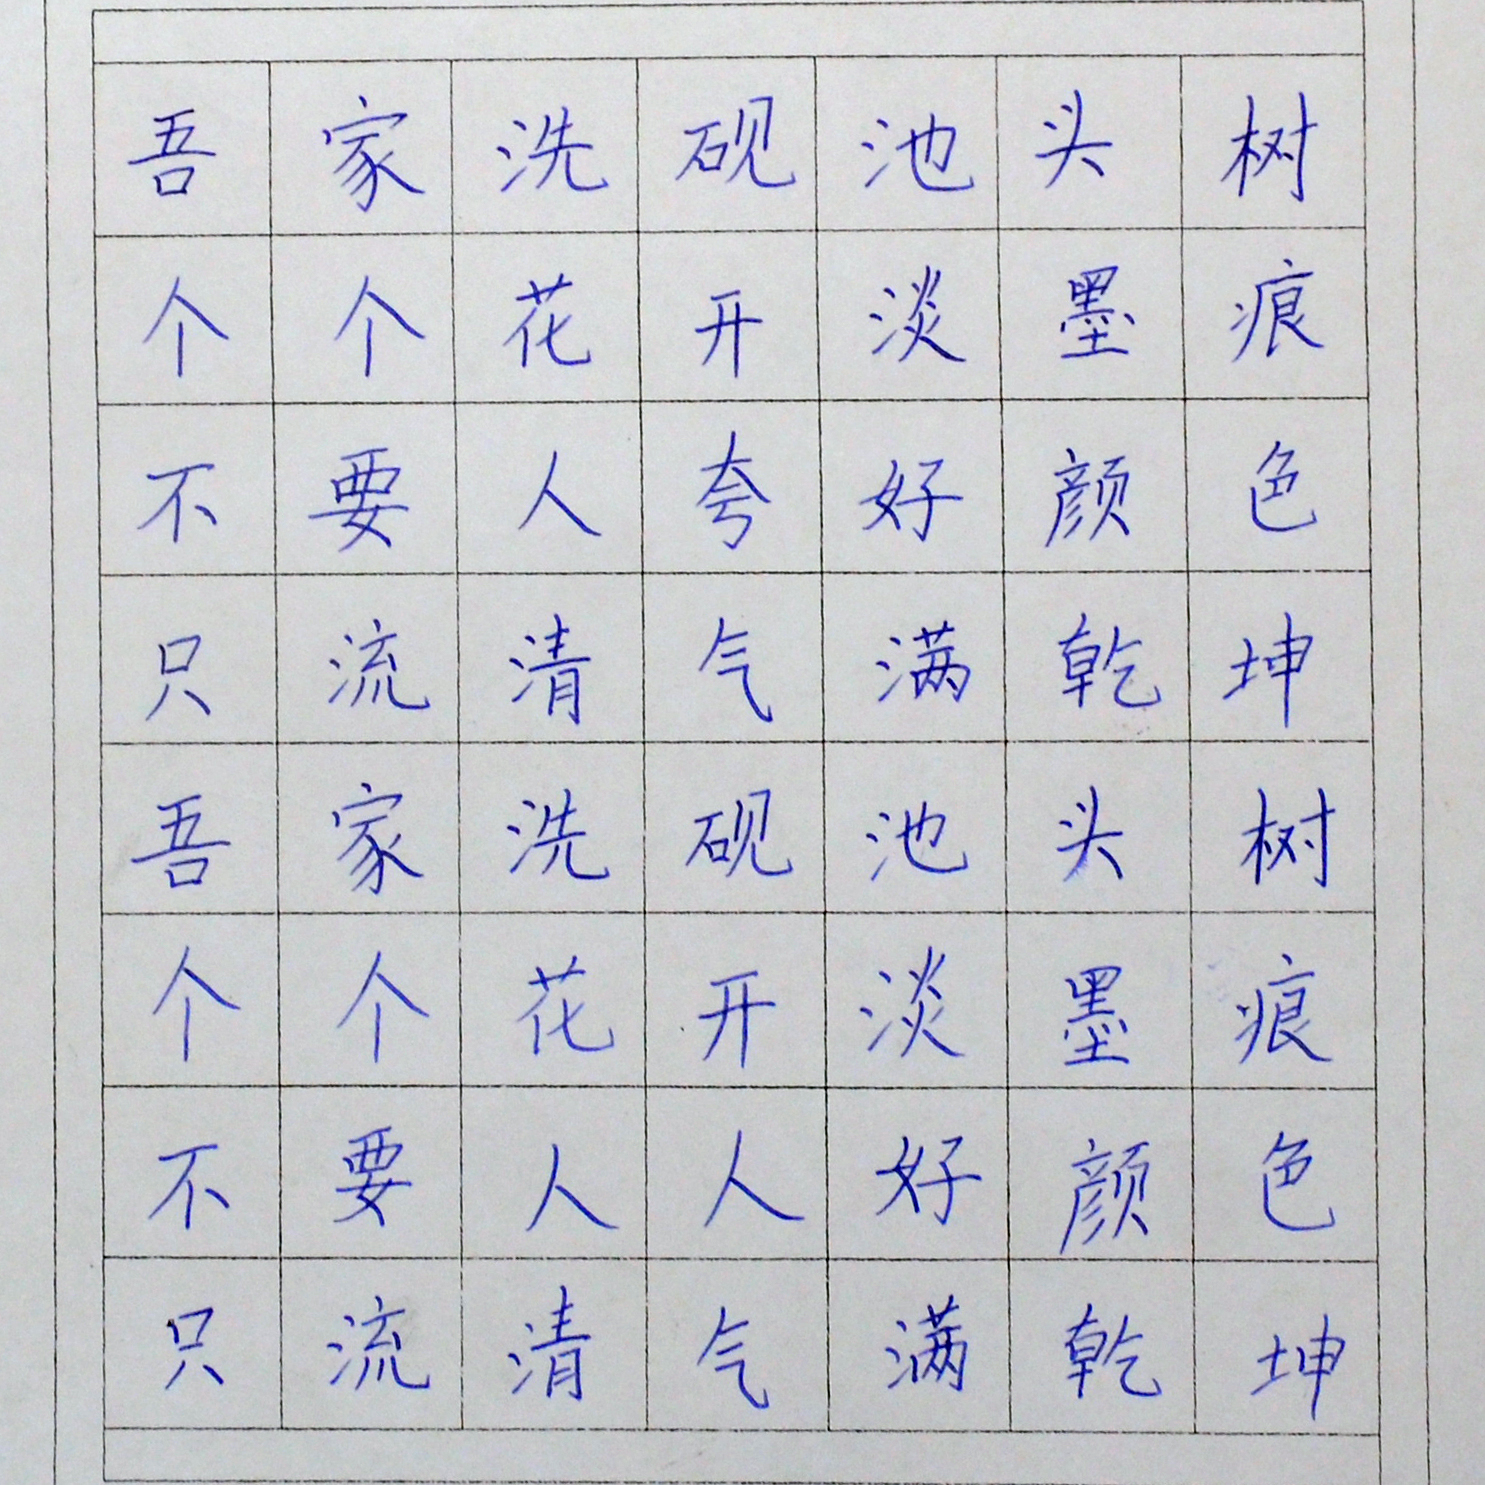 吾家洗砚池头树
个个花开淡墨痕
不要人夸好颜色
只流清气满乾坤
吾家洗砚池头树
个个花开淡墨痕
不要人人好颜色
只流清气满乾坤